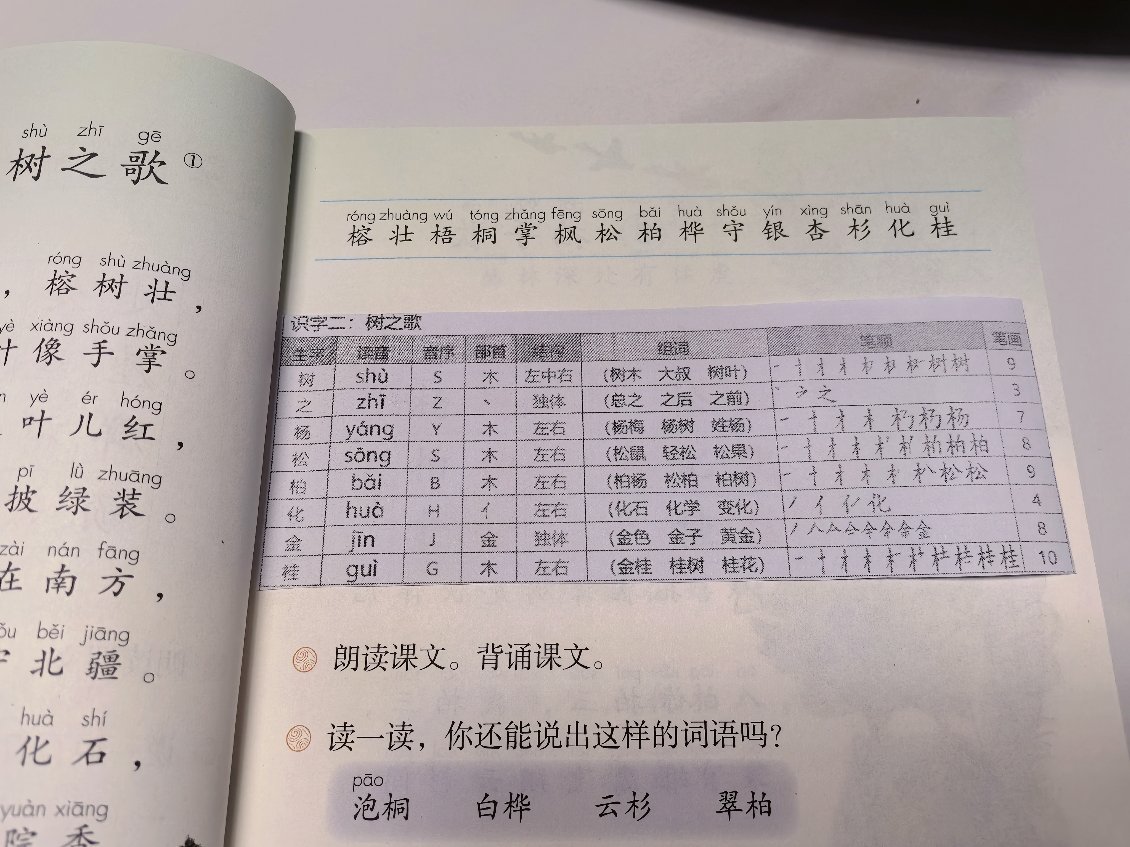 shù zhī gē
树之歌①
róng shù zhuàng
，榕树壮，
yè xiàng shǒu zhǎng
叶像手掌。
yè ér hóng
叶儿红，
pī lǜ zhuāng
披绿装。
zài nán fāng
在南方，
běi jiāng
北疆。
huà shí
化石，
yuàn xiāng
院香
róng zhuàng wú tóng zhǎng fēng sōng bǎi huà shǒu yín xìng shān huà guì
榕壮梧桐掌枫松柏桦守银杏杉化桂
识字二：树之歌
生字 读音 音序 部首 结构 组词 笔顺 笔画
树 shù S 木 左中右 （树木 大叔 树叶） 9
之 zhī Z 丶 独体 （总之 之后 之前） 3
杨 yáng Y 木 左右 （杨梅 杨树 姓杨） 7
松 sōng S 木 左右 （松鼠 轻松 松果） 8
柏 bǎi B 木 左右 （柏杨 松柏 柏树） 9
化 huà H 亻 左右 （化石 化学 变化） 4
金 jīn J 金 独体 （金色 金子 黄金） 8
桂 guì G 木 左右 （金桂 桂树 桂花） 10
朗读课文。背诵课文。
读一读，你还能说出这样的词语吗？
pāo
泡桐 白桦 云杉 翠柏